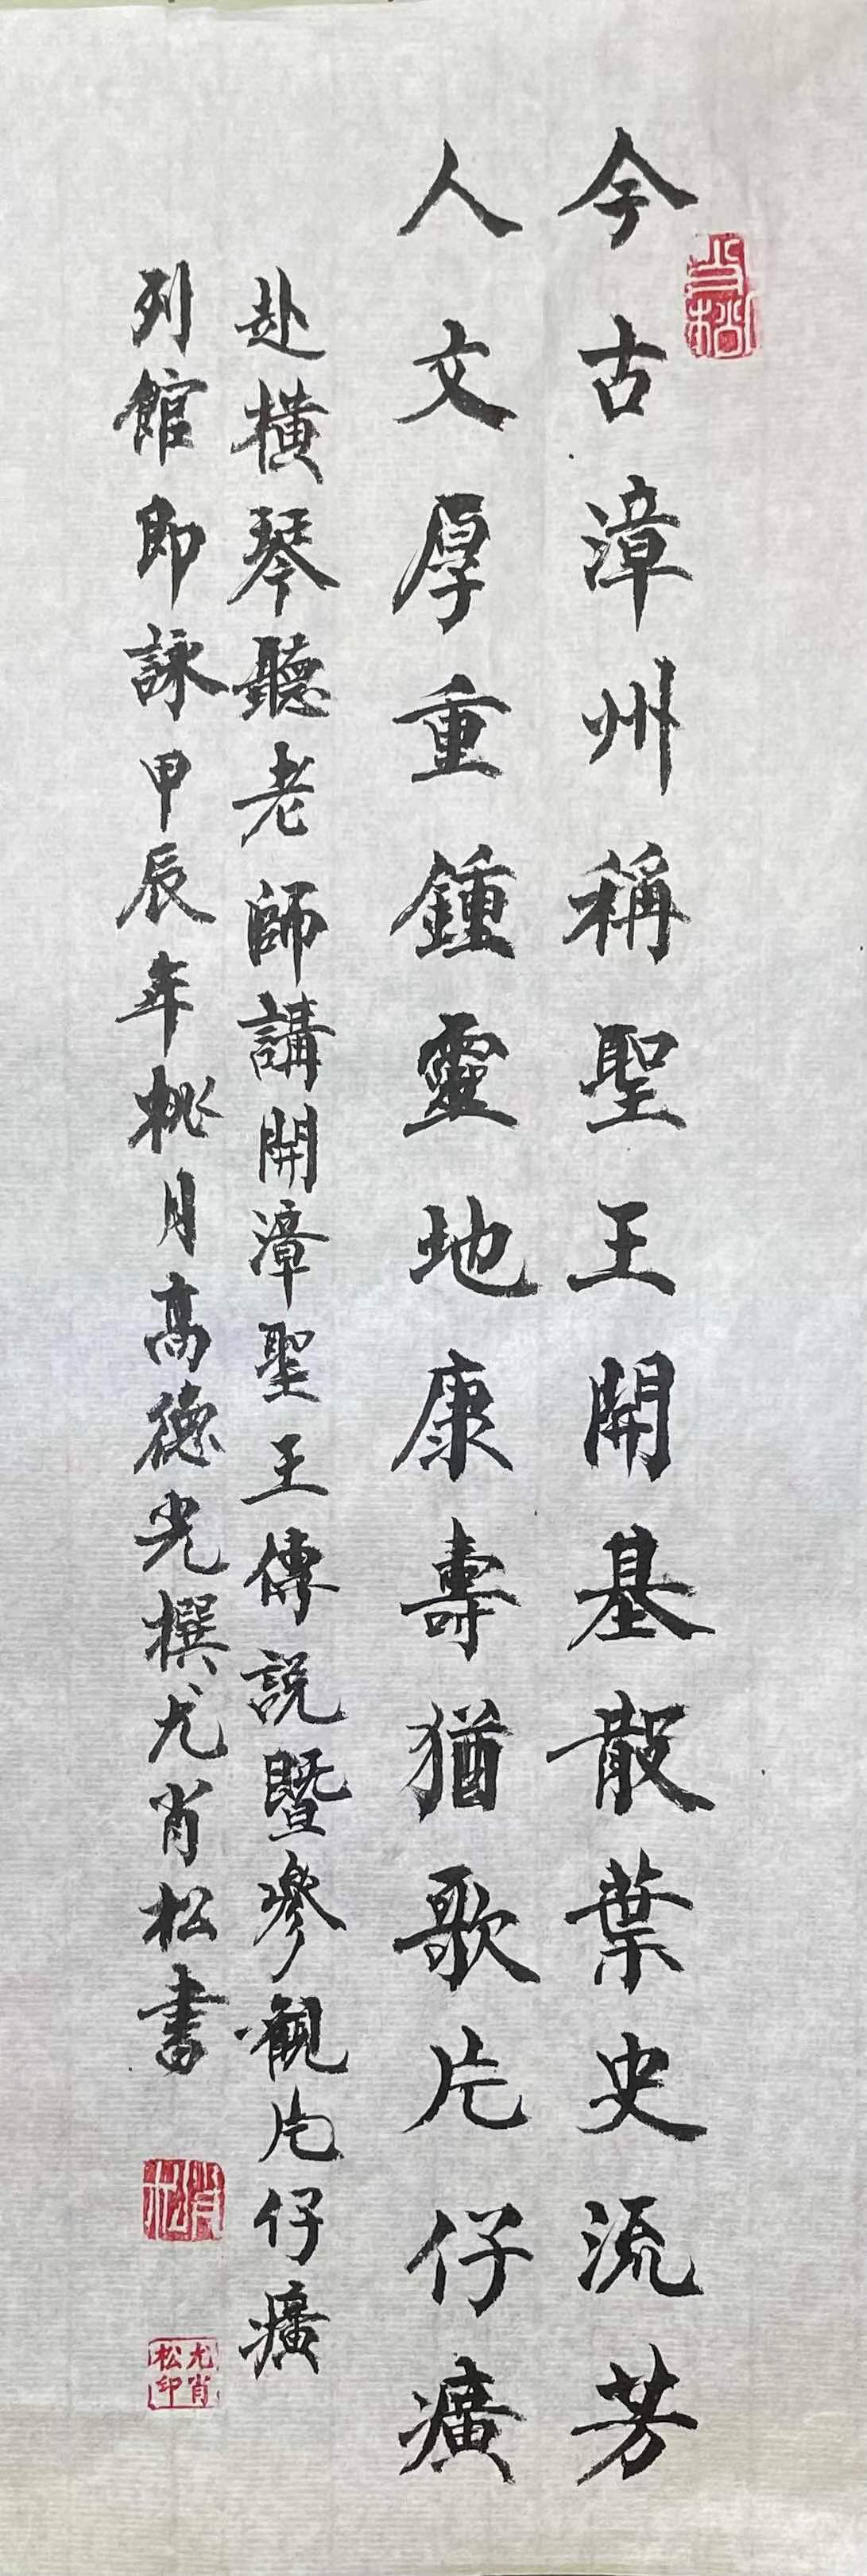 今古漳州稱聖王開基散葉史流芳
人文厚重鍾靈地康壽猶歌片仔癀
赴横琴聽老師講開漳聖王傳説暨參觀片仔癀
列館即詠甲辰年桃月高德光撰尤肖松書
肖松
肖松
尤肖松印